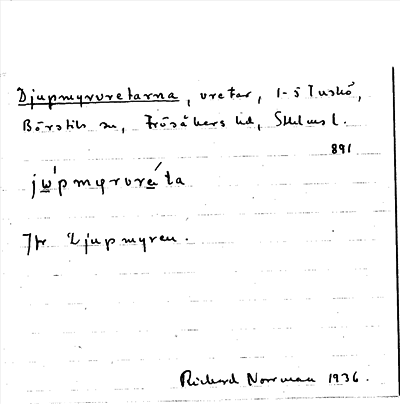 Djupmyrvretarna, vretar, 1-5 Tuskö,
Börstils sn, Frösåkers hd, Sthlms l.
891
jẃ̲pmyrvré̲ta
Jfr Djupmyren.
Rickard Norrman 1936.